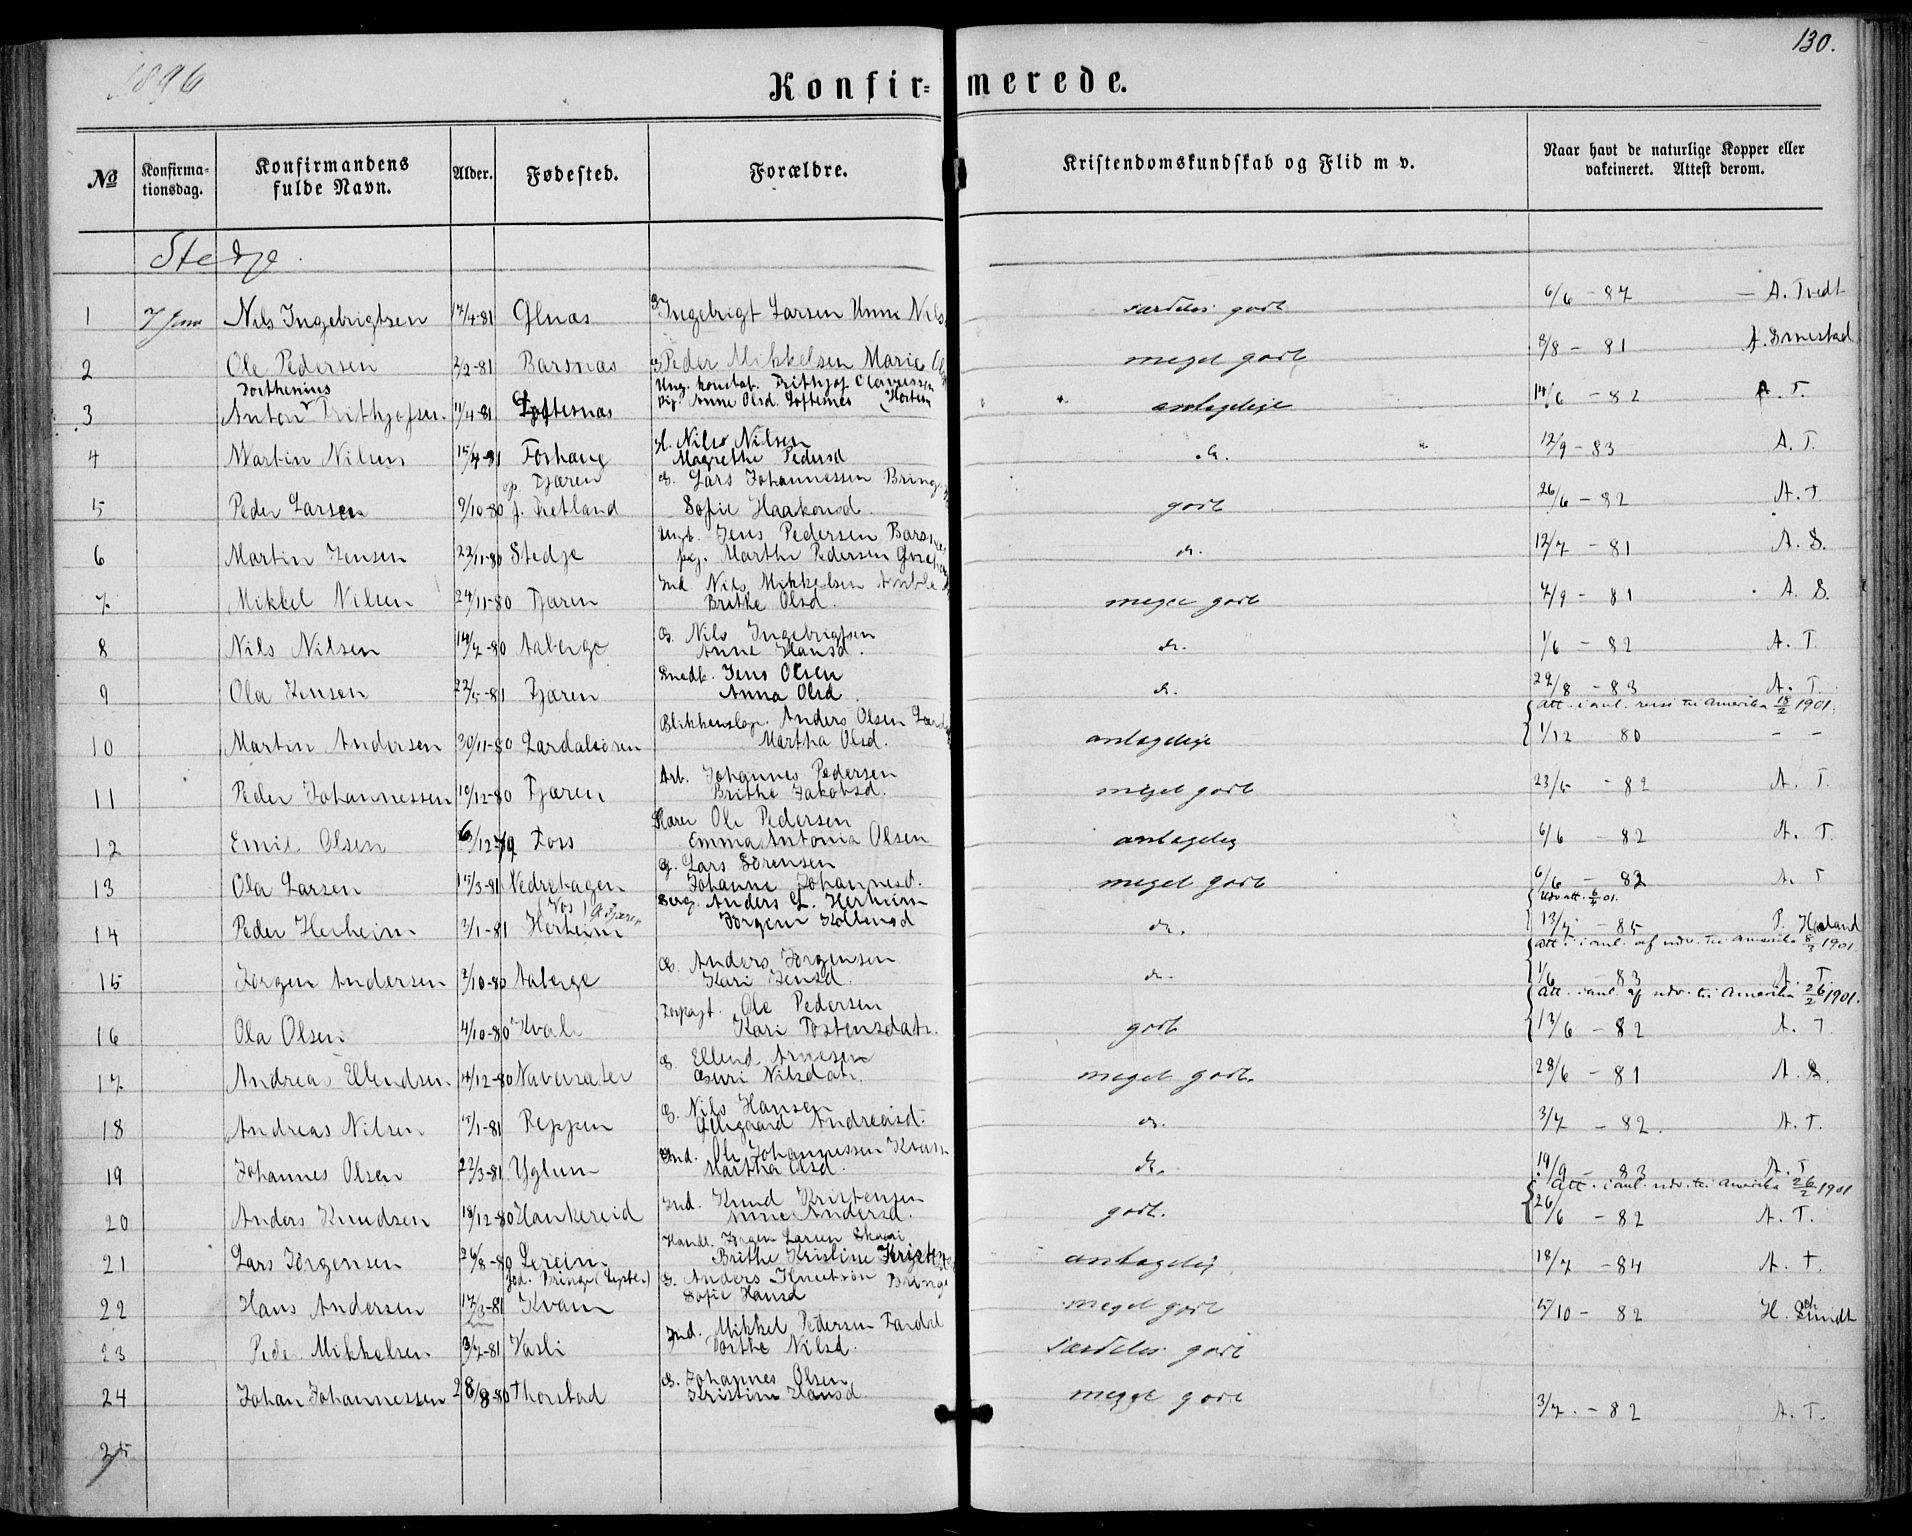 1896
130.
Konfir= merede.
№ Konfirma-tionsdag. Konfirmandens fulde Navn. Alder. Fødested. Forældre. Kristendomskundskab og Flid m v. Naar havt de naturlige Kopper eller vakcineret. Attest derom.
Stedje.
1 7 Juni Nils Ingebrigtsen 17/4-81 Ølnæs G. Ingebrigt Larsen Unni Nils særdeles godt 6/6 - 87 - A. Tvedt
2 Ole Pedersen 2/2-81 Barsnæs G. Peder Mikkelsen Marie meget godt 8/8 - 81
Ung. konstab. Frithjof Clausen
3 Anton Frithjofsen 11/4-81 Loftesnæs Pig. Anne Olsd. Loftesnes antagelige 14/6 - 82 A. T.
H. Nils Nilsen
4 Martin Nilsen 15/4-81 Foshaug Magrethe Pedersd do. 12/9-83 A. T.
op. Fjæren G. Lars Johannessen Bringe
5 Peder Larsen 9/10-80 f. Fretland Sofie Haakonsd. godt 26/6 - 82 A. T
Ungk. Jens Pedersen Barsnes
6 Martin Jensen 22/11-80 Stedje pig. Marthe Pedersen do. 12/7 - 81 A. S.
Ind Nils Mikkelsen Amble
7 Mikkel Nilsen 29/11-80 Fjæren Brithe Olsd. meget godt 7/9 - 81 A. S.
G. Nils Ingebrigtsen
8 Nils Nilsen 14/7-80 Aaberge Anne Hansd. do. 1/6 - 82 A. T.
Snedk. Jens Olsen
9 Ola Jensen 22/5-81 Fjæren Anna Olsd. do. 29/8 - 83 A. T.
Blikkenslag. Anders Olsen att. i anl. reise til Amerika 18/2 1901.
10 Martin Andersen 30/11-80 Lærdalsøren Martha Olsd. antagelige 1/12 80 - -
Arb. Johannes Pedersen
11 Peder Johannessen 10/12-80 Fjæren Brithe Jakobsd. meget godt 23/5 - 82 A. T.
Ole Pedersen
12 Emil Olsen 6/12-79 Foss Emma Antonia Olsen antagelig 6/6 - 82 A. T.
G. Lars Sørensen
13 Ola Larsen 15/3-81 Nedrehagen Johanne Johannesd. meget godt 6/6 - 82 A. T
(Vos) Serg. Anders L. Herheim Udv. att. 6/4 01.
14 Peder Herheim 2/1-81 Herheim Jorgine do. 13/7 - 85
G. Anders Jørgensen att. i anl. af udv. til Amerika 8/3 1901
15 Jørgen Andersen 2/10-80 Aaberge Kari Jensd. do. 1/6 - 83 A. T
Forpagt. Ole Pedersen att. i anl. af udv. til Amerika 26/2 1901.
16 Ola Olsen 4/10-80 Kvale Kari Tostensdatr. godt 13/6 - 82 A. T
G. Ellend Arnesen
17 Andreas Ellendsen 14/12-80 Navarsæter Guri Nilsdatr. meget godt. 28/6 - 81 A. S.
G. Nils Hansen
18 Andreas Nilsen 15/1-81 Reppen Ølegaard Andreasd. do. 3/7 - 82. A. T.
Ind. Ole Johannessen Kvam
19 Johannes Olsen 22/3-81 Yglum Martha Olsd. do. 19/9 - 83 A. T
Ind. Knud Kristensen att. i anl. udv. til Amerika 26/2 1901
20 Anders Knudsen 18/12-80 Haukereid Anne Andersd. godt. 26/6 - 82 A. T.
Handl. Jørgen Larsen
21 Lars Jørgensen 26/8-80 Lerein Brithe Kristine antagelig 18/7 - 84 A. T.
fød. Bringe (Syste.) G. Anders Knutson Bringe
22 Hans Andersen 17/3-81 Kvam Sofie Hansd meget godt 5/10 - 82
Ind. Mikkel Pedersen
23 Peder Mikkelsen 3/7-81 Vasli Dorthe Nilsd. særdeles godt
G. Johannes Olsen
24 Johan Johannessen 28/8-80 Thorstad Kristine Hansd. meget godt 3/7. - 82 A. T.
25